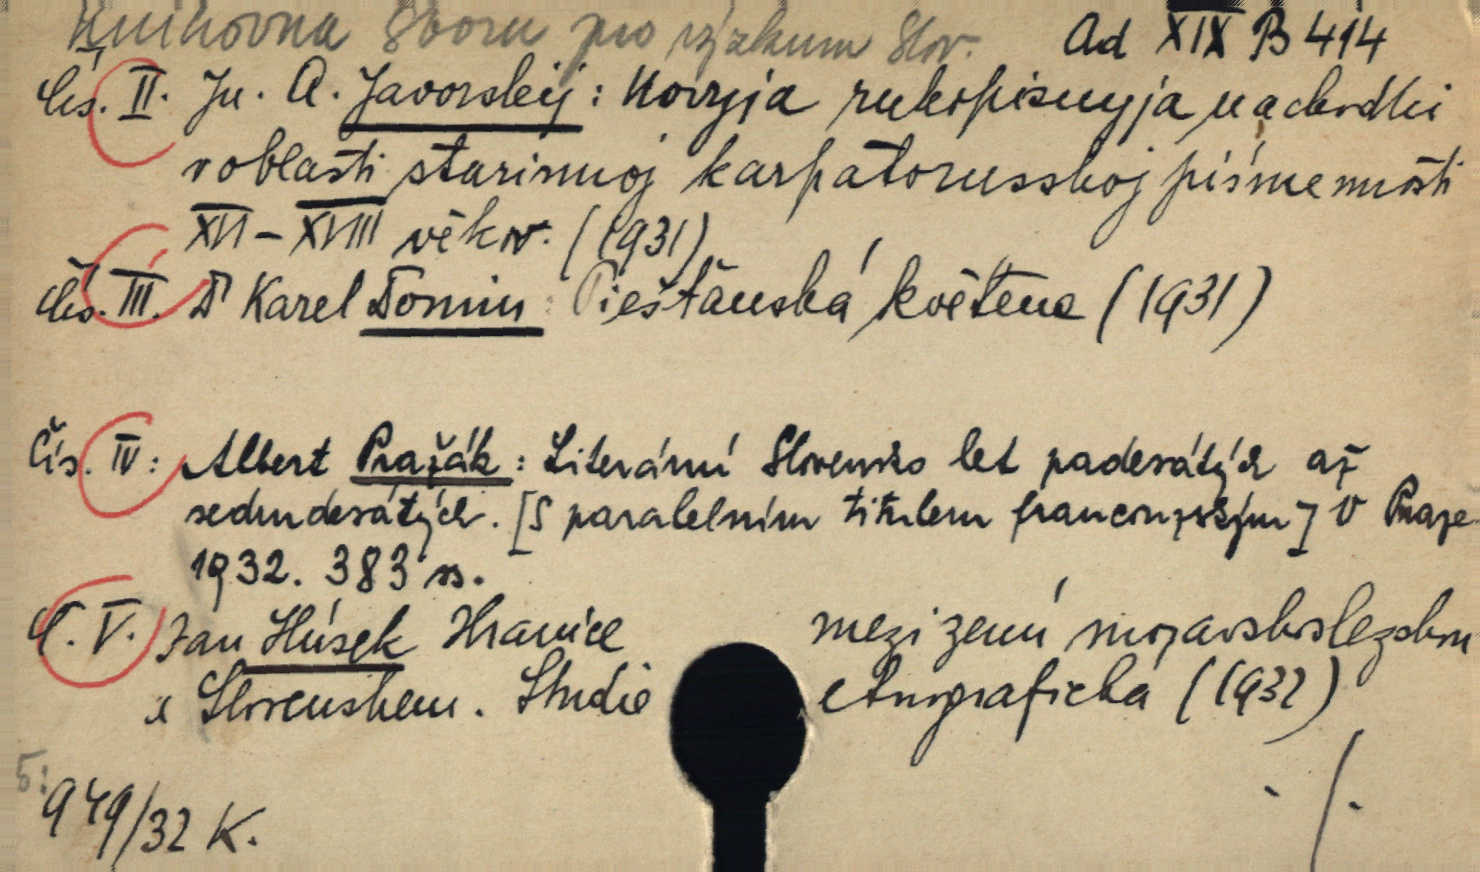 Knihovna Sboru pro výzkum Slov. Ad XIX B 414
Čís. II. Ju. A. Javorskij: Novyja rukopisnyja nachodki
v oblasti starinnoj karpatorusskoj piśmennosti
XVI-XVIII věkov. (1931)
Čís. III. Dr Karel Domin: Piešťanská květena (1931)
Čís. IV: Albert Pražák: Literární Slovensko let padesátých až
sedmdesátých. [S paralelním titulem francouzským] V Praze
1932. 383 ss.
Č. V. Jan Húsek Hranice mezi zemí moravskoslezskou
a Slovenskem. Studie etnografická (1932)
5:
949/32 K. ./.